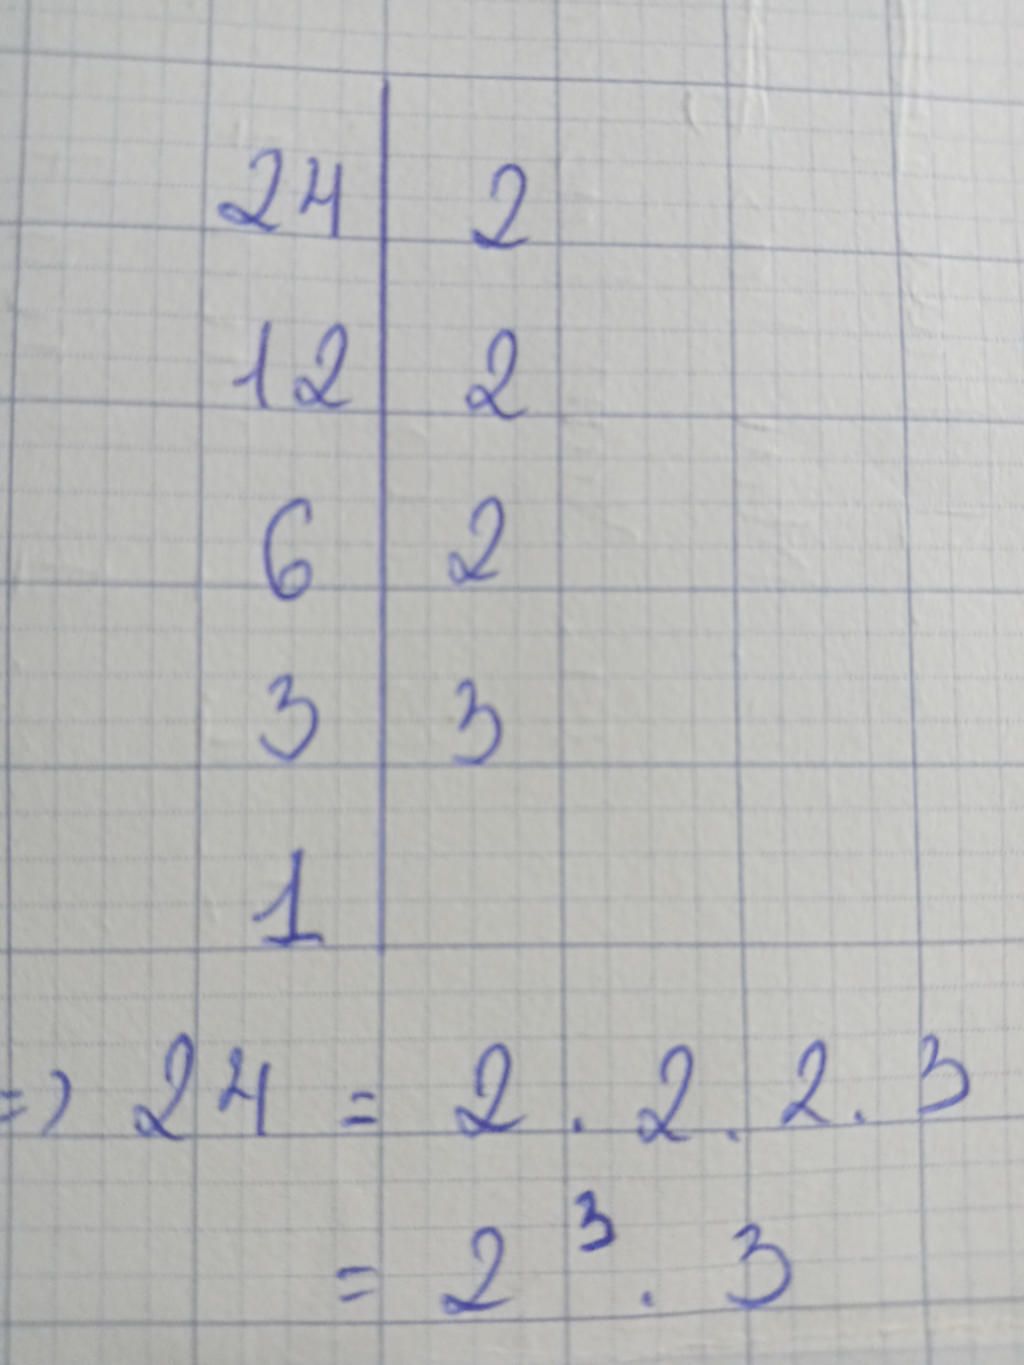 24 | 2
12 | 2
6 | 2
3 | 3
1 |
=> 24 = 2 . 2 . 2 . 3
= 2³ . 3